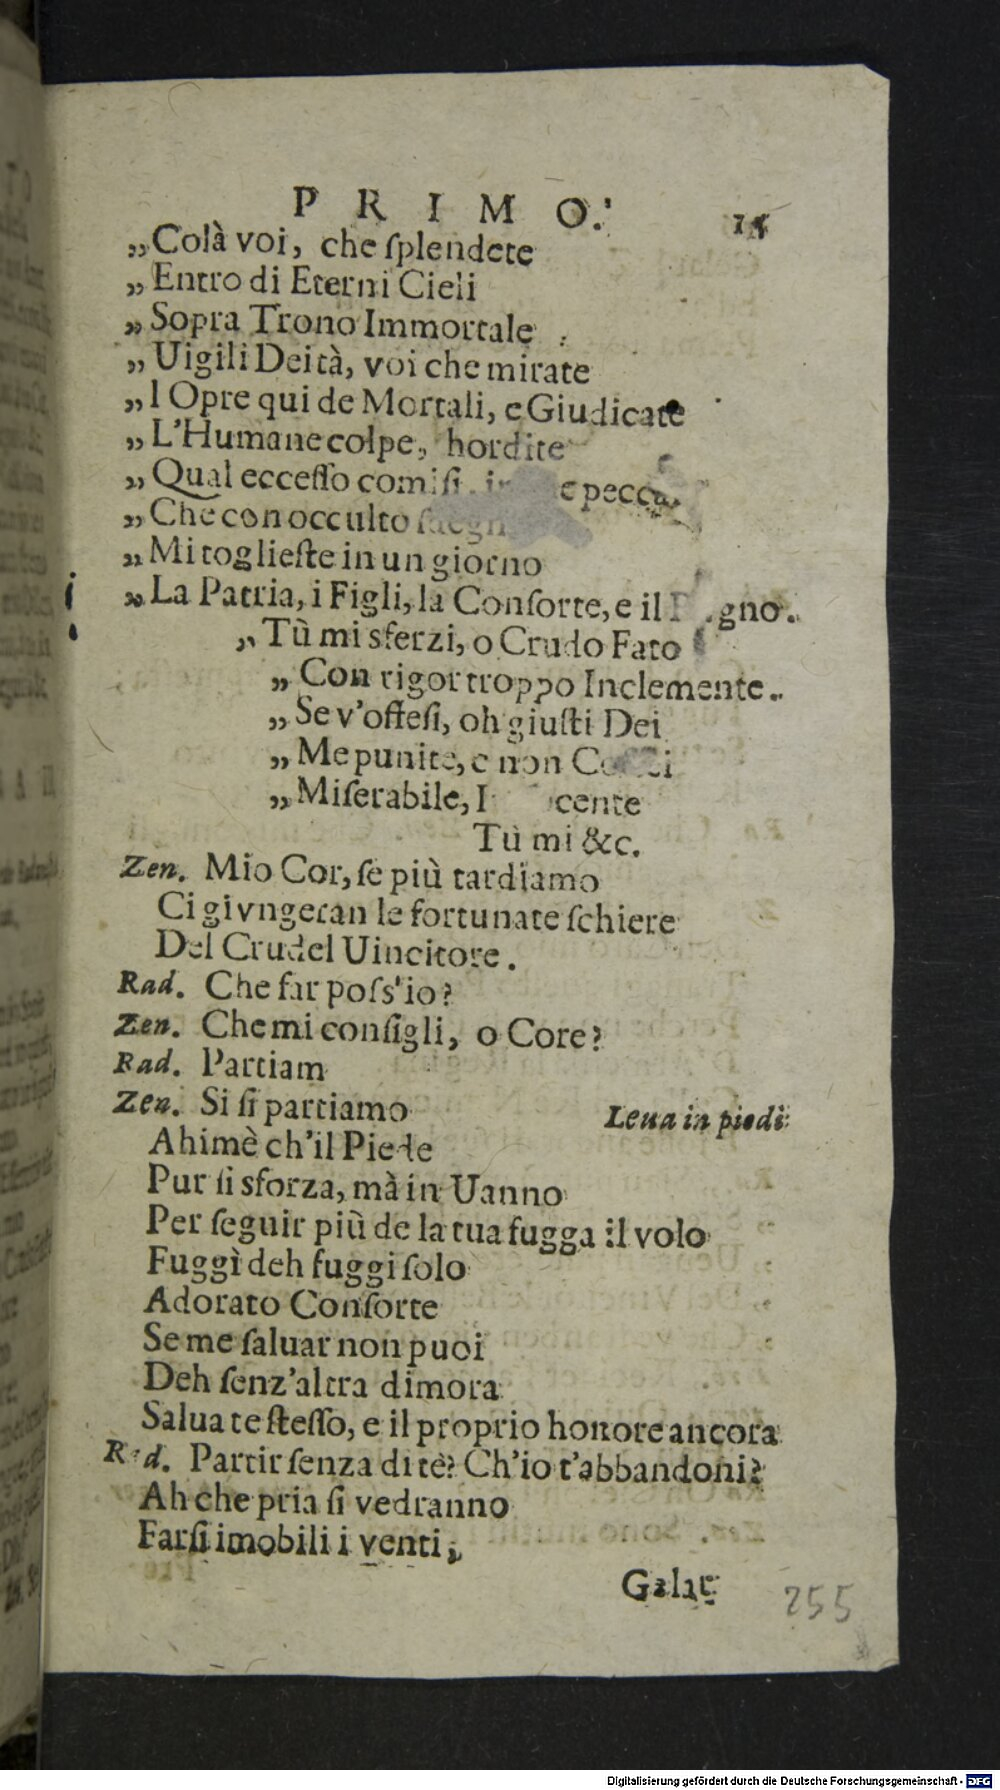 PRIMO. 15
„Colà voi, che ſplendete
„Entro di Eterni Cieli
„Sopra Trono Immortale.
„Uigili Deità, voi che mirate
„l Opre qui de Mortali, e Giudicate
„L'Humane colpe, hor dite
„Qual ecceſſo comiſi, in che peccai
„Che con occulto
„Mi toglieſte in un giorno
„La Patria, i Figli, la Conſorte, e il Regno.
„Tù mi sferzi, o Crudo Fato
„Con rigor troppo Inclemente.
„Se v'offeſi, oh giuſti Dei
„Me punite, e non Coſtei
„Miſerabile, Inocente
Tù mi &c.
Zen. Mio Cor, ſe più tardiamo
Ci givngeran le fortunate ſchiere
Del Crudel Uincitore.
Rad. Che far poſs'io?
Zen. Che mi conſigli, o Core?
Rad. Partiam
Zen. Si ſi partiamo Leua in piedi
Ahimè ch'il Piede
Pur ſi sforza, mà in Uanno
Per ſeguir più de la tua fugga il volo
Fuggì deh fuggi ſolo
Adorato Conſorte
Se me ſaluar non puoi
Deh ſenz'altra dimora
Salua te ſteſſo, e il proprio honore ancora
Rad. Partir ſenza di tè? Ch'io t'abbandoni?
Ah che pria ſi vedranno
Farſi imobili i venti,
Gelar
255
Digitalisierung gefördert durch die Deutsche Forschungsgemeinschaft - DFG